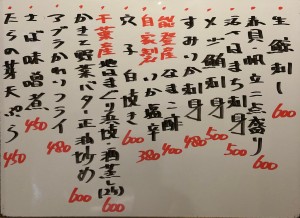 生鯨刺し 600
春貝・帆立二点盛り 600
活〆はまち刺身 500
〆さば刺身 500
すみいか刺身 480
能登産 なまこ酢 400
自家製 いか塩辛 380
穴子白焼き 600
千葉産 地はまぐり浜焼・酒蒸し(2ケ) 600
かきと野菜バター正油炒め 600
アブラかれいフライ 480
さば味噌煮 450
たらの芽天ぷら 450